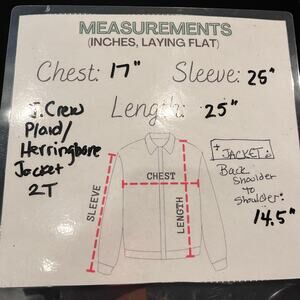 MEASUREMENTS
(INCHES, LAYING FLAT)
Chest: 17" Sleeve: 25"
Length: 25"
J. Crew
Plaid/
Herringbone
Jacket
2T
SLEEVE
CHEST
LENGTH
+ JACKET:
Back
Shoulder
to
Shoulder:
14.5"